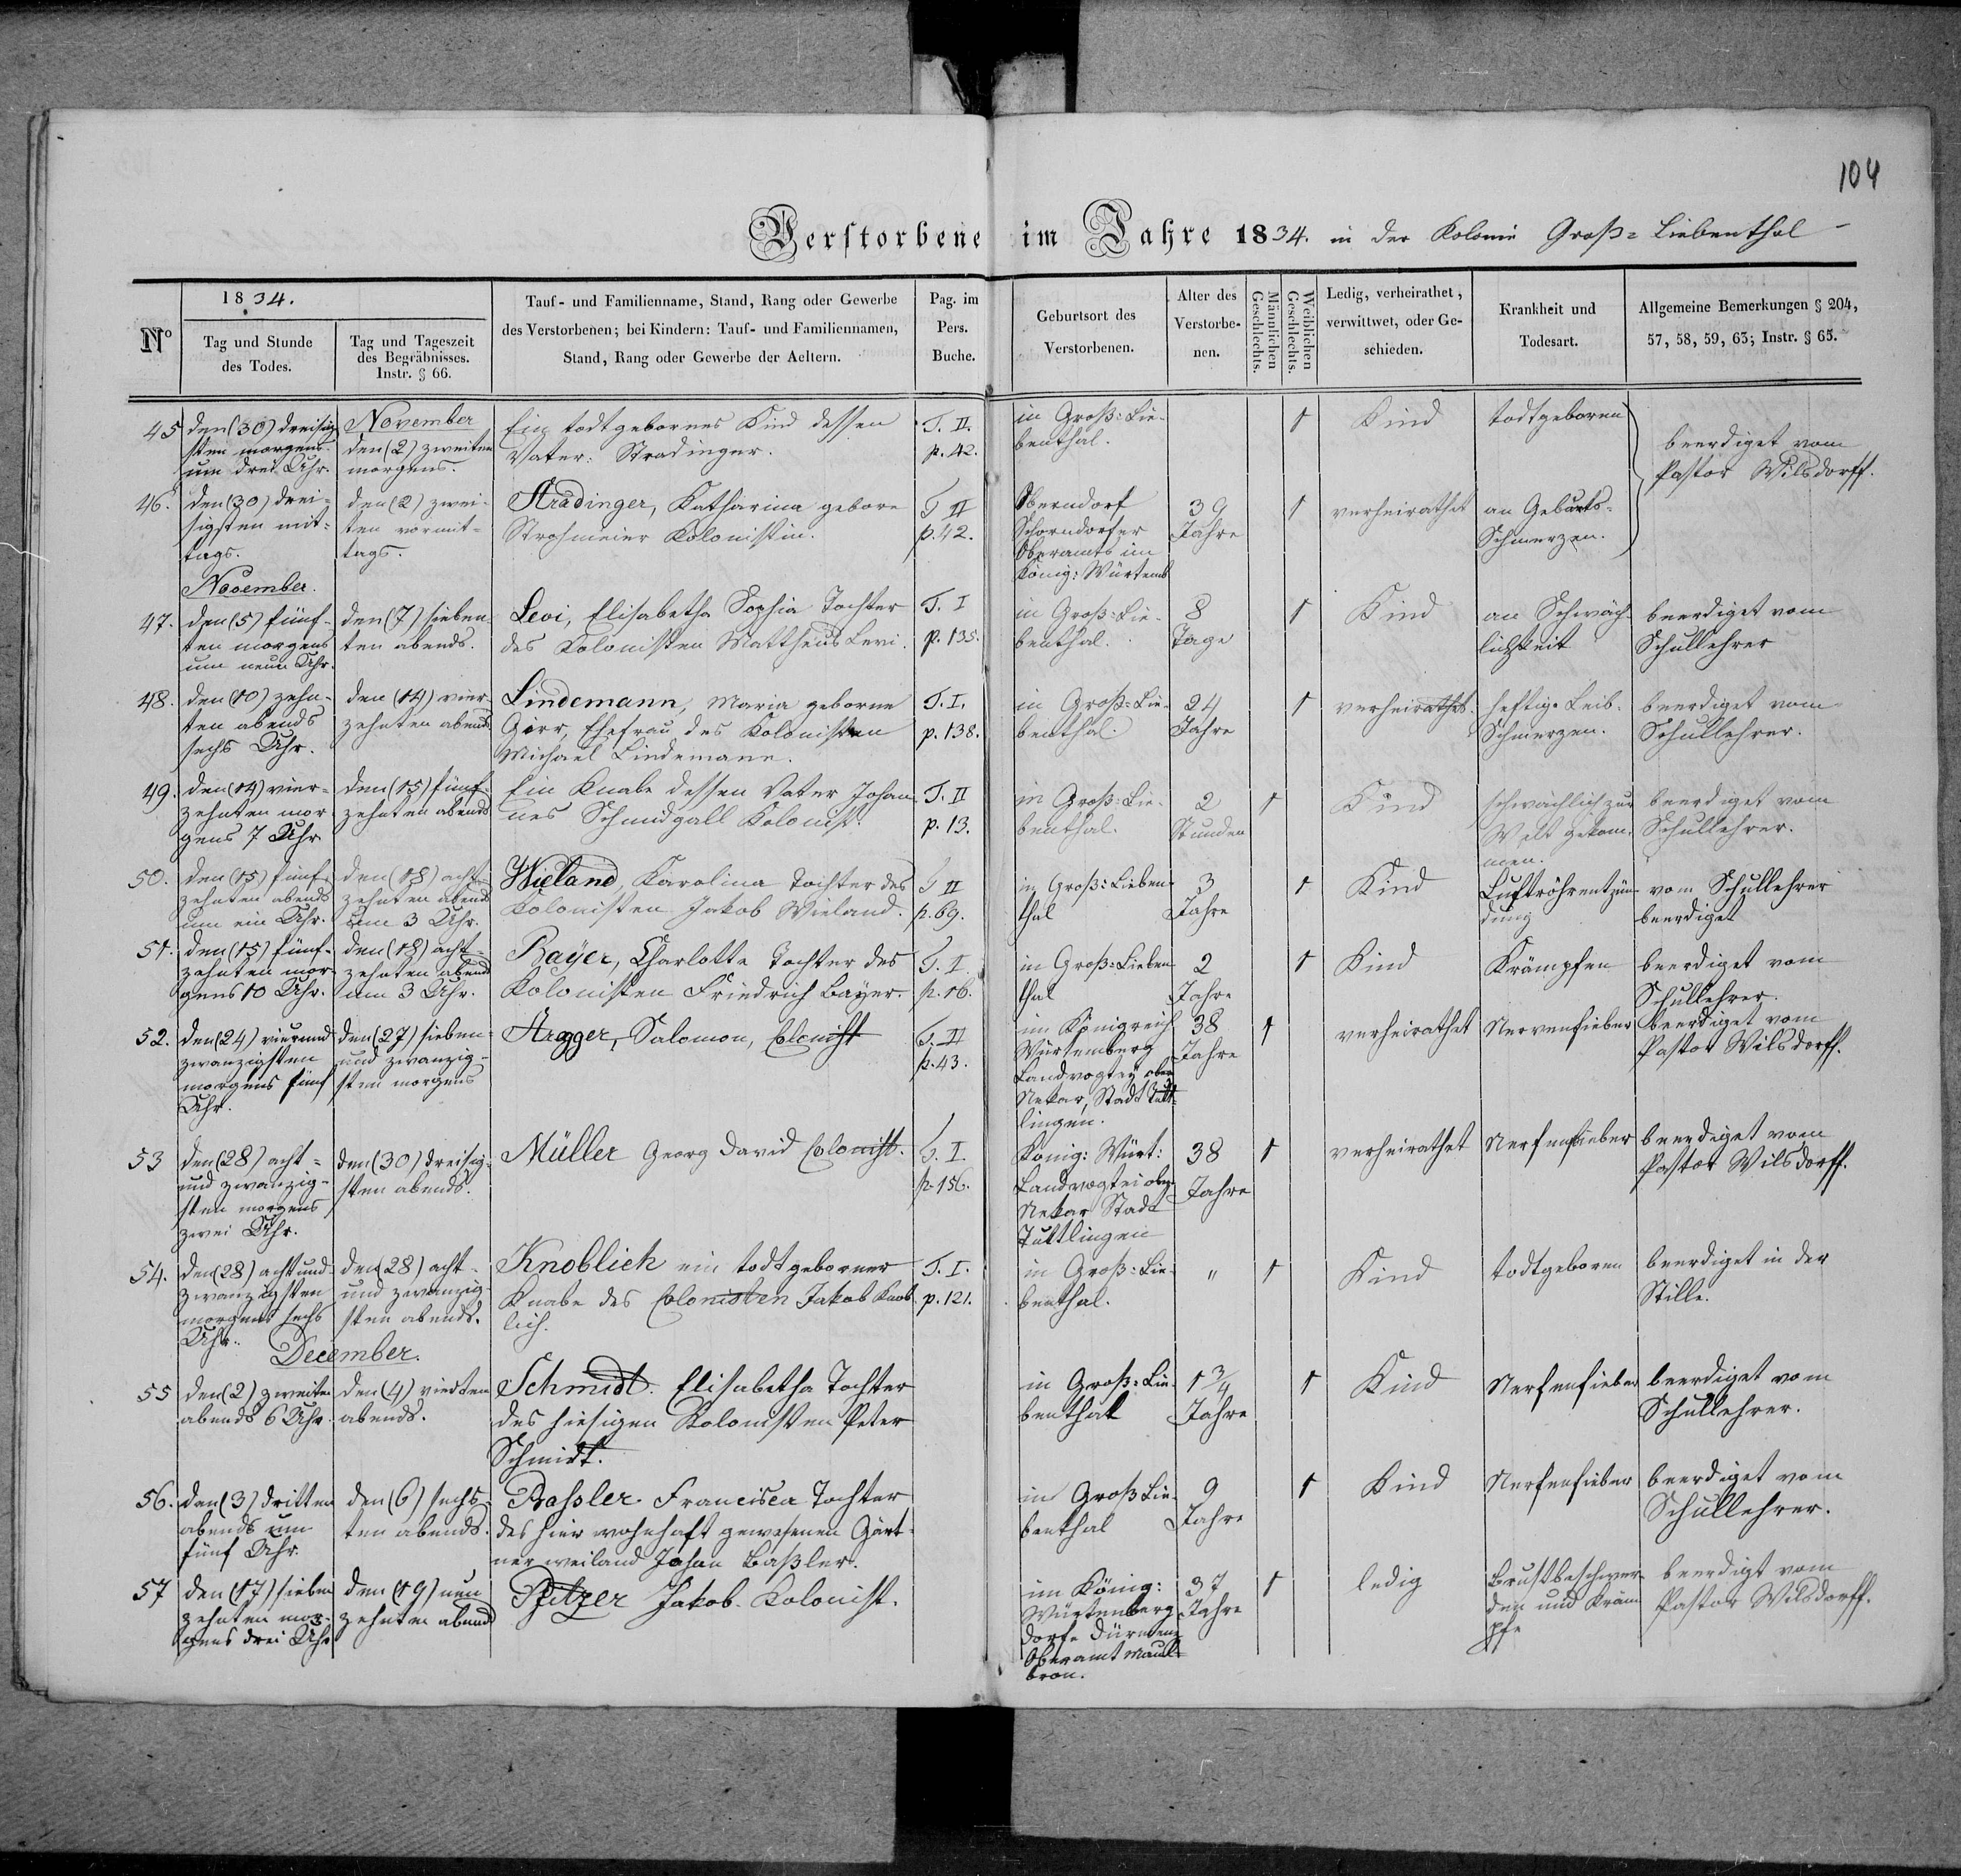 104
Verstorbene im Jahre 1834. in der Kolonie Groß=Liebenthal
Nº
1834.
Tag und Stunde
des Todes.
Tag und Tageszeit
des Begräbnisses.
Instr. § 66.
Tauf- und Familienname, Stand, Rang oder Gewerbe
des Verstorbenen; bei Kindern: Tauf- und Familiennamen,
Stand, Rang oder Gewerbe der Aeltern.
Pag. im
Pers.
Buche.
Geburtsort des
Verstorbenen.
Alter des
Verstorbe-
nen.
Männlichen
Geschlechts.
Weiblichen
Geschlechts.
Ledig, verheirathet,
verwittwet, oder Ge-
schieden.
Krankheit und
Todesart.
Allgemeine Bemerkungen § 204,
57, 58, 59, 63; Instr. § 65.
45
den (30) dreisig
sten morgens
um drei Uhr.
November
den (2) zweiten
morgens.
Ein todtgebornes Kind dessen
Vater: Stradinger.
T. II.
p. 42.
in Groß=Lie-
benthal.
1
Kind
todtgeboren
beerdiget vom
Pastor Wilsdorff.
46.
den (30) drei=
sigsten mit=
tags.
den (2) zwei-
ten vormit=
tags.
Stradinger, Katharina geborne
Strohmeier Kolonistin.
T II
p. 42.
Oberndorf
Schorndorfer
Oberamts im
König: Würtemb
39
Jahre
1
verheirathet
an Geburts-
Schmerzen.
November.
47.
den (5) fünf-
ten morgens
um neun Uhr.
den (7) sieben
ten abends.
Levi, Elisabetha Sophia Tochter
des Kolonisten Mattheus Levi.
T. I
p. 135.
in Groß=Lie-
benthal.
8
Tage
1
Kind
an Schwäch-
lichkeit
beerdiget vom
Schullehrer
48.
den (10) zehn-
ten abends
sechs Uhr.
den (14) vier
zehnten abends
Lindemann, Maria geborne
Görr, Ehefrau des Kolonisten
Michael Lindemann.
T. I.
p. 138.
in Groß=Lie-
benthal.
24
Jahre
1
verheirathet.
heftige Leib-
Schmerzen.
beerdiget vom
Schullehrer.
49.
den (14) vier-
zehnten mor
gens 7 Uhr
den (15) fünf-
zehnten abends
Ein Knabe dessen Vater Johan
nes Schmidgall Kolonist.
T. II
p. 13.
in Groß=Lie-
benthal.
2
Stunden
1
Kind
schwächlich zur
Welt gekom-
men.
beerdiget vom
Schullehrer.
50.
den (15) fünf-
zehnten abends
um ein Uhr.
den (18) acht
zehnten abends
um 3 Uhr.
Wieland, Karolina Tochter des
Kolonisten Jakob Wieland.
T II
p. 69.
in Groß=Lieben
thal
3
Jahre
1
Kind
Luftröhrentzün-
dung
vom Schullehrer
beerdiget
51.
den (15) fünf-
zehnten mor
gens 10 Uhr.
den (18) acht-
zehnten abends
um 3 Uhr.
Bayer, Charlotta Tochter des
Kolonisten Friedrich Bayer.
T. I.
p. 16.
in Groß=Lieben
thal
2
Jahre
1
Kind
Krämpfen
beerdiget vom
Schullehrer.
52.
den (24) vierund
zwanzigsten
morgens fünf
Uhr.
den (27) sieben-
und zwanzig-
sten morgens
Salomon, Colonist
T. II
p. 43.
im Königreich
Würtemberg
Landvogtey ober
Nekar, Stadt Tutt-
lingen.
38
Jahre
1
verheirathet
Nervenfieber
beerdiget vom
Pastor Wilsdorff.
53
den (28) acht=
und zwanzig-
sten morgens
zwei Uhr.
den (30) dreisig-
sten abends.
Müller Georg David Colonist.
T. I.
p. 156.
König: Würt:
Landvogtei ober
Nekar Stadt
Tuttlingen
38
Jahre
1
verheirathet
Nerfenfieber
beerdiget vom
Pastor Wilsdorff.
54.
den (28) acht und
zwanzigsten
morgens sechs
Uhr.
den (28) acht-
und zwanzig-
sten abends.
Knoblich ein todtgeborner
Knabe des Colonisten Jakob Knob
lich.
T. I.
p. 121.
in Groß=Lie-
benthal.
"
1
Kind
todtgeboren
beerdiget in der
Stille.
December.
55
den (2) zweiten
abends 6 Uhr.
den (4) vierten
abends.
Schmidt. Elisabetha Tochter
des hiesigen Kolonisten Peter
Schmidt.
in Groß=Lie-
benthal
1 3/4
Jahre
1
Kind
Nerfenfieber
beerdiget vom
Schullehrer.
56.
den (3) dritten
abends um
fünf Uhr.
den (6) sechs-
ten abends.
Baßler. Francisca Tochter
des hier wohnhaft gewesenen Gärt-
ner weiland Johan Baßler.
in Groß Lie-
benthal
9
Jahre
1
Kind
Nerfenfieber
beerdiget vom
Schullehrer.
57
den (17) sieben
zehnten mor-
gens drei Uhr
den (19) neun
zehnten abends
Pfitzer Jakob. Kolonist.
im König:
Würtenberg
Dorfe Dürmenz
Oberamt Maul-
bron.
37
Jahre
1
ledig
Brustbeschwer-
den und Kräm
pfe
beerdigt vom
Pastor Wilsdorff.